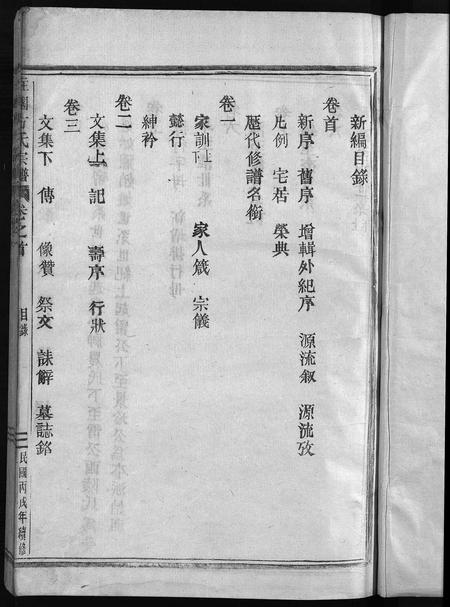 新編目錄
卷首
新序 舊序 增輯外紀序 源流叙 源流攷
凡例 宅居 榮典
歷代修譜名銜
卷一
家訓上 家人箴 宗儀
懿行
紳衿
卷二
文集上 記 壽序 行狀
卷三
文集下 傳 像贊 祭文 誄辭 墓誌銘
方氏宗譜 卷之首 目錄 民國丙戌年續修